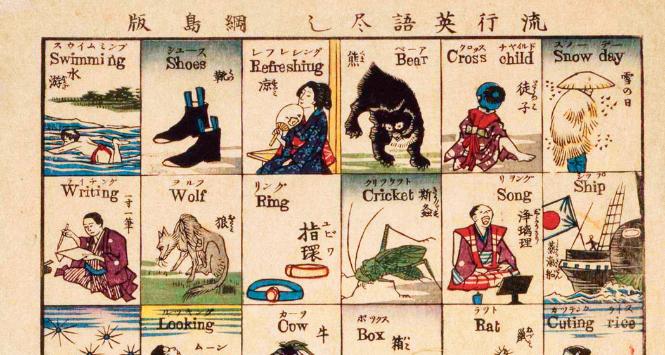 流行英語尽し 綱島版
スウイムミンプ
Swimming
水游
シユース
Shoes
靴
レフレシング
Refreshing
凉
ベーア
Bear
熊
クロッス チヤイルド
Cross child
徒子
スノー デー
Snow day
雪の日
ライチング
Writing
一寸一筆
ヲルフ
Wolf
狼
リング
Ring
指環
ユビワ
Cricket
Song
浄瑠理
シツプ
Ship
蒸滊舩
ルッキング
Looking
ムーン
カーヲ
Cow
牛
ボックス
Box
箱
ラット
Rat
Cuting rice